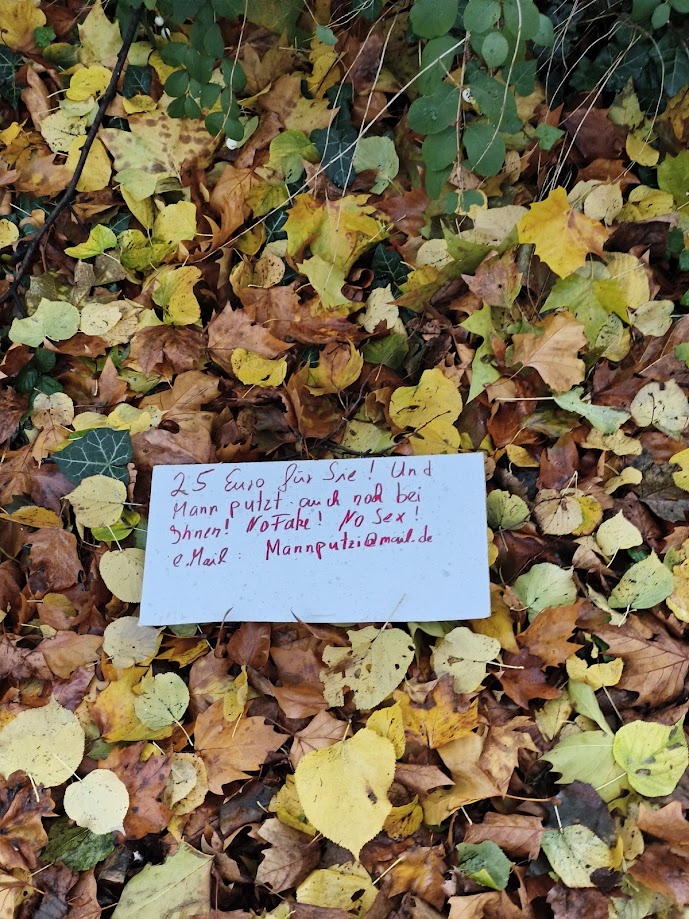 25 Euro für Sie! Und
Mann putzt auch noch bei
Ihnen! No Fake! No Sex!
e.Mail: Mannputzi@mail.de